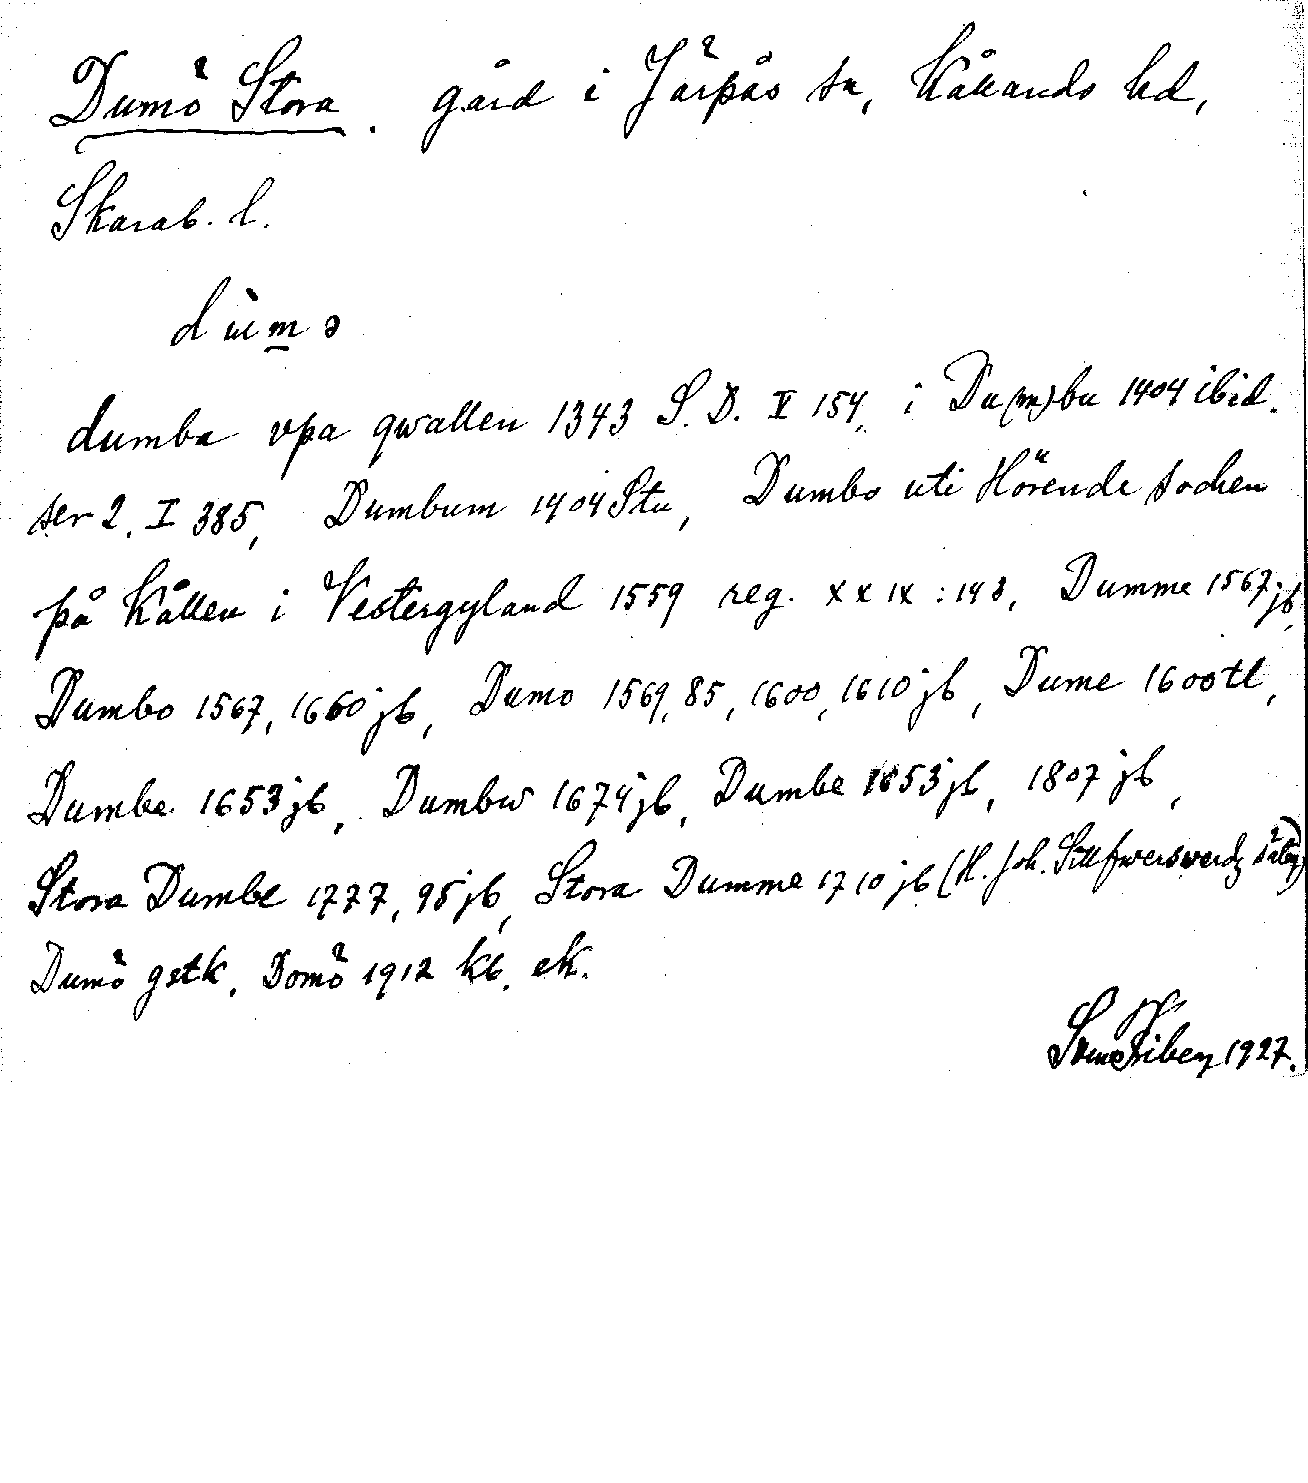 Dumö Stora. gård i Järpås sn, Kållands hd,
Skarab. l.
dùmə
dumba vpa qwallen 1343 S. D. V 154, i Du(m)bu 1404 ibid.
ser 2. I 385, Dumbum 1404 Stu, Dumbo uti Hörende sochen
på Kållen i Vestergyland 1559 reg. XXIX : 143, Dumme 1567 jb,
Dumbo 1567, 1660 jb, Dumo 1569, 85, 1600, 1610 jb, Dume 1600 tl,
Dumbe 1653 jb, Dumbw 1674 jb, Dumbe 1653 jb, 1807 jb,
Stora Dumbe 1777, 95 jb, Stora Dumme 1710 jb (H. Joh. Sillfwerswerdz
Dumö gstk, Domö 1912 kb. ek.
1927.